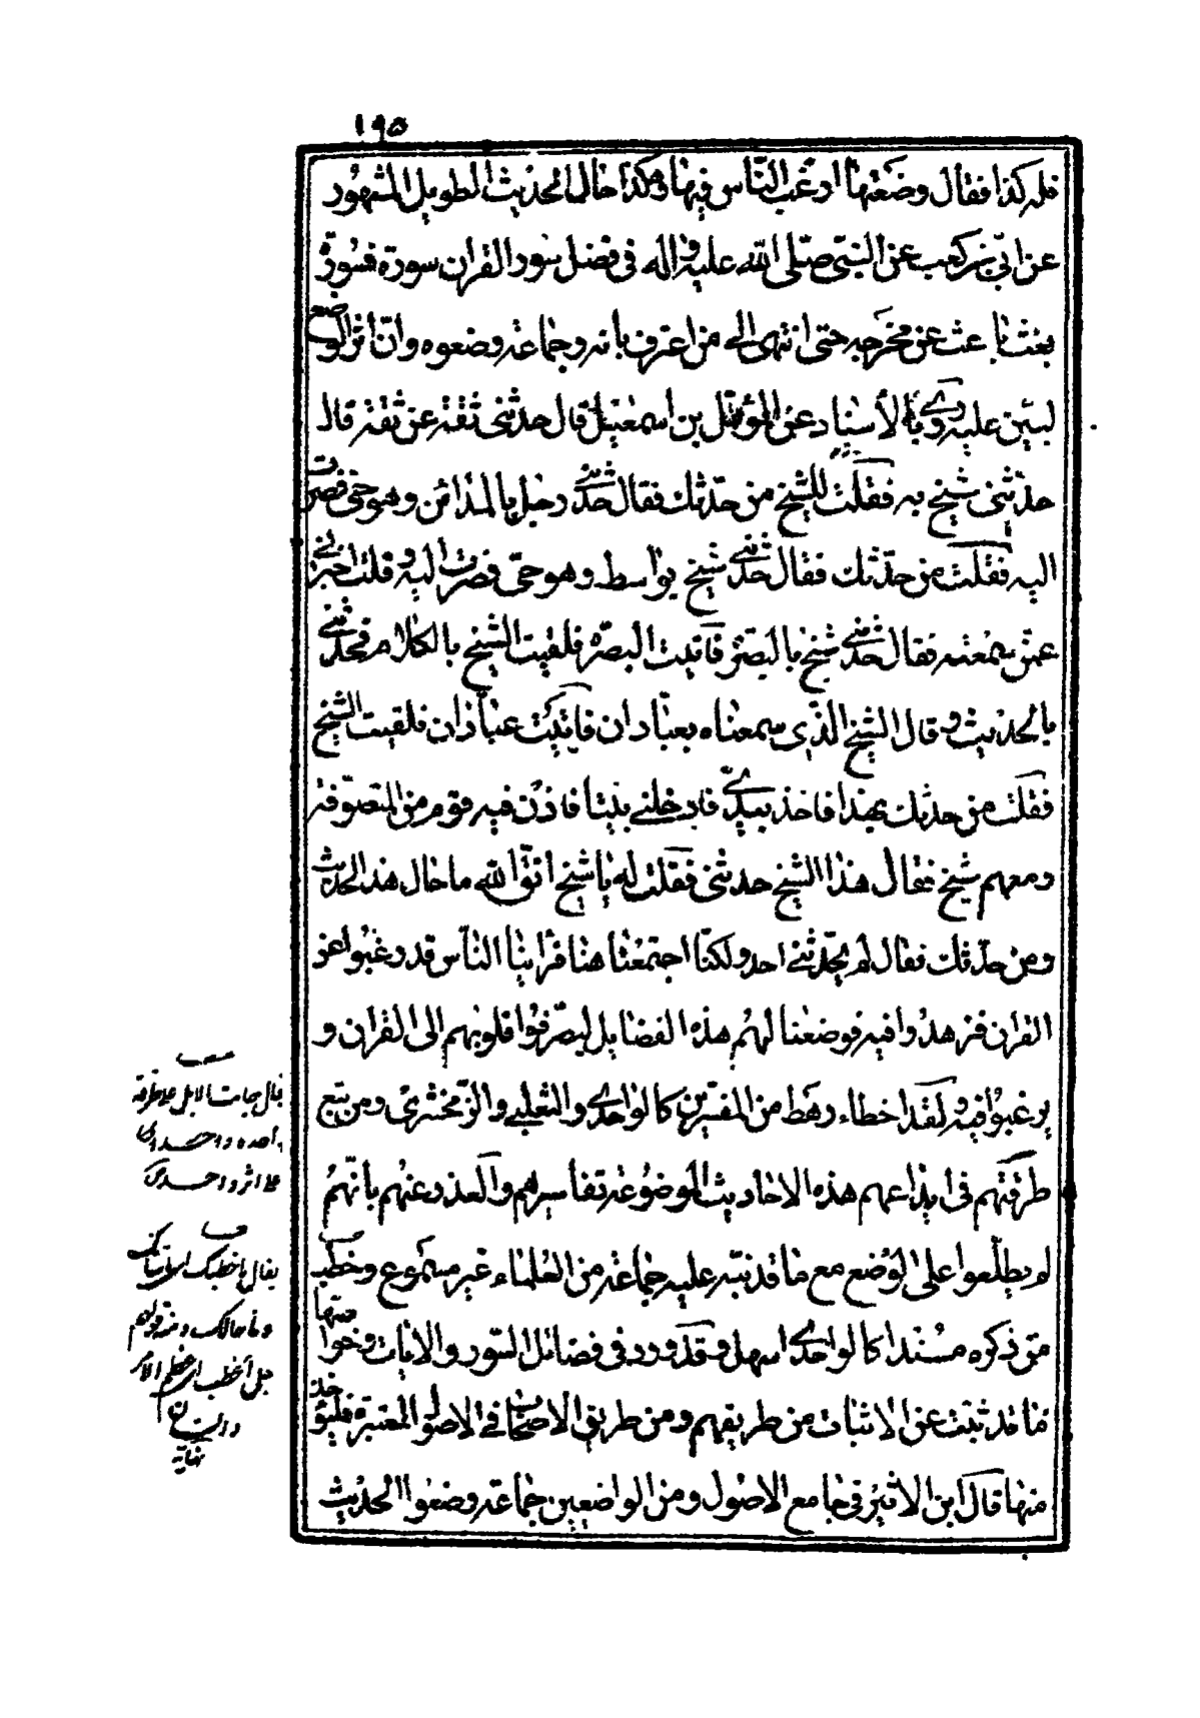 ١٩٥
فله كذا فقال وضعتها ارغب الناس فيها وهكذا حال الحديث الطويل المشهور
عن ابيّ بن كعب عن النبيّ صلّى الله عليه واله في فضل سور القران سورة فسورة
بحث باحث عن مخرجه حتى انتهى الى من اعترف بانه وجماعة وضعوه وانّ اثر الوضع
لبيّن عليه وروى بالأسناد عن المؤمّل بن اسمعيل قال حدثنى ثقة عن ثقة قال
حدّثنى شيخ به فقلت للشيخ من حدّثك فقال حدّثنى رجل بالمدائن وهو حىّ فصرت
اليه فقلت من حدّثك فقال حدّثنى شيخ بواسط وهو حىّ فصرت اليه وقلت اخبرنى
عمّن سمعته فقال حدّثنى شيخ بالبصرة فاتيت البصرة فلقيت الشيخ بالكلام فحدّثنى
بالحديث وقال الشيخ الّذى سمعناه بعبّادان فاتيت عبّادان فلقيت الشيخ
فقلت من حدثك بهذا فاخذ بيدىّ فادخلنى بيتا فاذن فيه قوم من المتصوّفة
ومعهم شيخ فقال هذا الشيخ حدثنى فقلت له يا شيخ اتّق الله ما حال هذا الحديث
ومن حدّثك فقال لم يحدّثنى احد ولكنّا اجتمعنا هنا فراينا النّاس قد رغبوا عن
القران فزهدوا فيه فوضعنا لهم هذه الفضايل ليصرفوا قلوبهم الى القران و
يرغبوا فيه ولقد اخطاء رهط من المفسرين كالواحدى والثعلبى والزّمخشرى ومن تبع
طرقتهم فى ايداعهم هذه الاحاديث الموضوعة تفاسيرهم والعذر عنهم بانّهم
لم يطّلعوا على الوضع مع ما قد نبّه عليه جماعة من العلماء غير مسموع وخطب
من ذكره مسندا كالواحدى اسهل وقد ورد فى فضائل السّور والايات ونحوها
ما قد ثبت عن الاثبات من طريقهم ومن طريق الاصحاب فى الاصول المعتبرة فليؤخذ
منها قال ابن الاثير فى جامع الاصول ومن الواضعين جماعة وضعوا الحديث
يقال جاءت الابل على طرقة
واحدة واحدة اى
على اثر واحد ص
يقال ما خطبك اى ما شانك
وما حالك ومنه قولهم
جلّ الخطب اى عظم الامر
والشان
نهاية